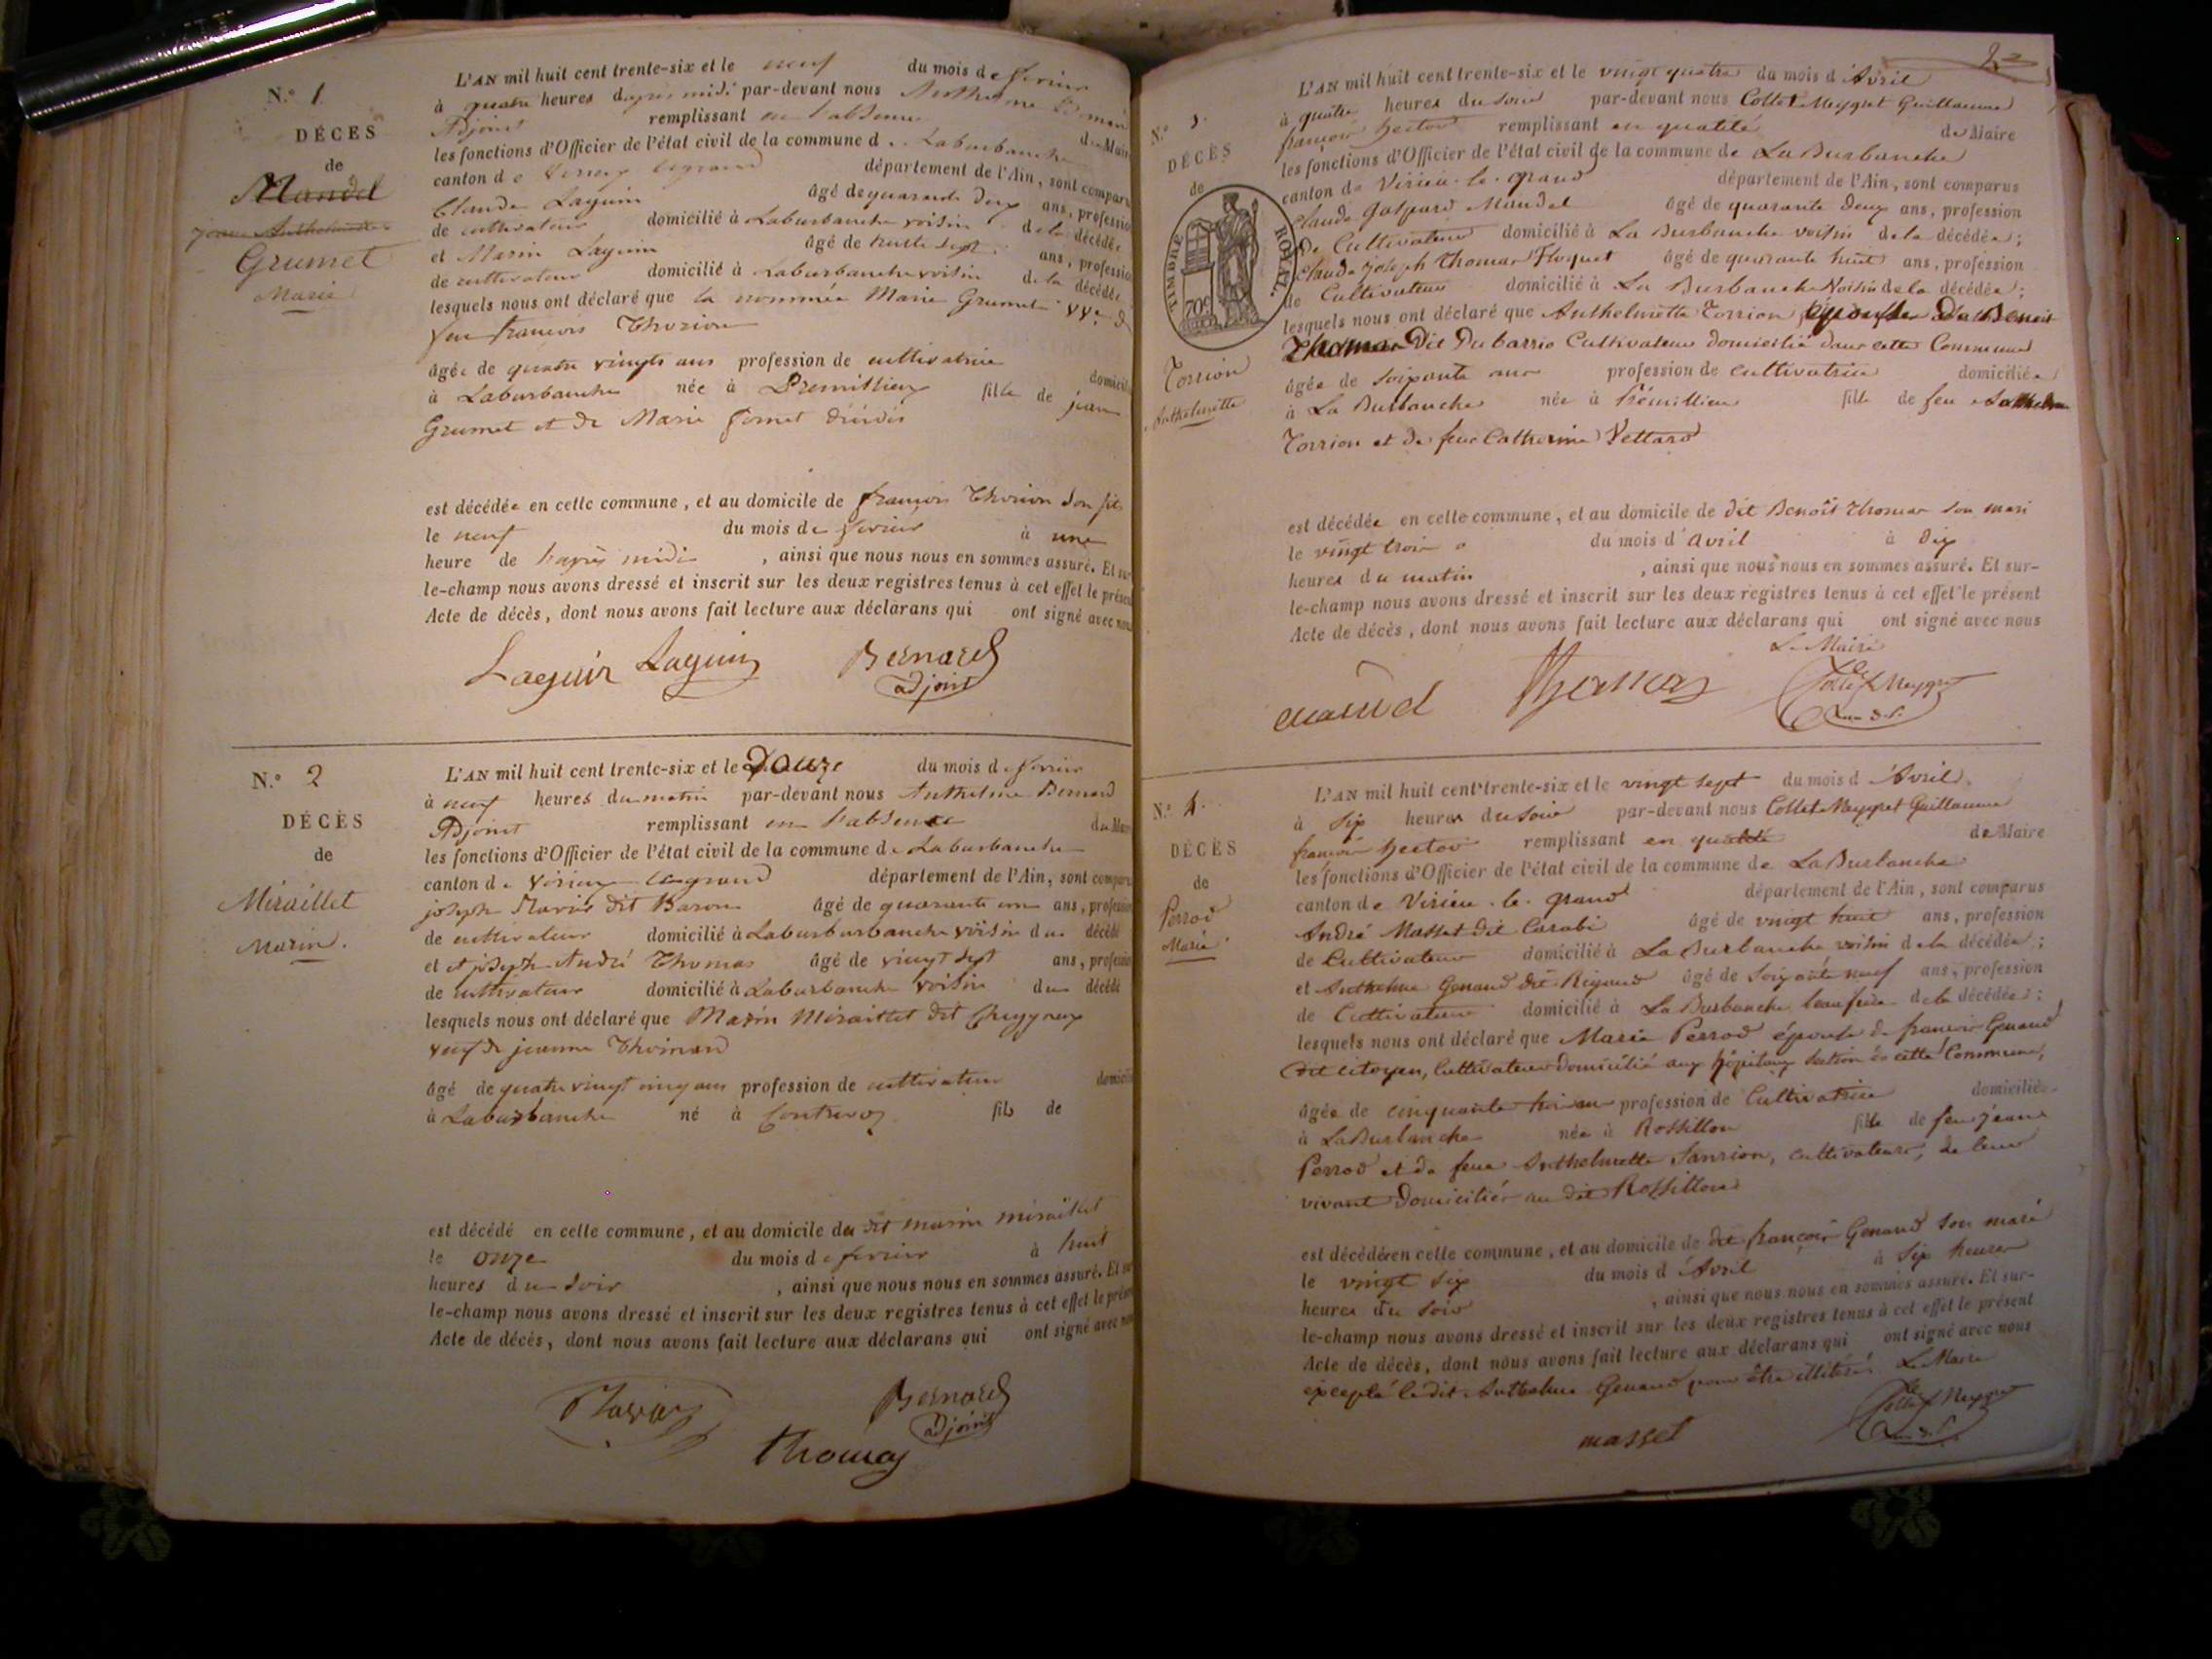 N.° 1
DÉCÈS
de
Mandel
Grumet
Marie
L'AN mil huit cent trente-six et le neuf du mois de fevrier
à quatre heures d'après midi par-devant nous Anthelme
Adjoint remplissant en l'absence du Maire
les fonctions d'Officier de l'état civil de la commune de Laburbanche
canton de Virieux legrand département de l'Ain, sont comparus
Claude Laguin âgé de quarante deux ans, profession
de cultivateur domicilié à Laburbanche voisin de la décédée
et Marin Laguin âgé de trente sept ans, profession
de cultivateur domicilié à Laburbanche voisin de la décédée
lesquels nous ont déclaré que la nommée Marie Grumet vve d
feu francois Thorion
âgée de quatre vingts ans profession de cultivatrice domicili
à Laburbanche née à Premillieux fille de jean
Grumet et de Marie fornet décédés
est décédée en cette commune, et au domicile de françois Thorion son fils
le neuf du mois de fevrier à une
heure de l'après midi, ainsi que nous nous en sommes assuré. Et sur
le-champ nous avons dressé et inscrit sur les deux registres tenus à cet effet le présent
Acte de décès, dont nous avons fait lecture aux déclarans qui ont signé avec nous
Laguin Laguin Bernard
adjoint
N.° 2
DÉCÈS
de
Miraillet
Marin.
L'AN mil huit cent trente-six et le Douze du mois de fevrier
à neuf heures du matin par-devant nous Anthelme Bernard
Adjoint remplissant en l'absence du Maire
les fonctions d'Officier de l'état civil de la commune de Laburbanche
canton de Virieux legrand département de l'Ain, sont comparus
joseph dit Baron âgé de quarante un ans, profession
de cultivateur domicilié à Laburburbanche voisin du décédé
et et joseph André Thomas âgé de vingt sept ans, profession
de cultivateur domicilié à Laburbanche voisin du décédé
lesquels nous ont déclaré que Marin Miraillet dit
veuf de jeanne Thoinard
âgé de quatre vingt cinq ans profession de cultivateur domicilié
à Laburbanche né à Contrevoz fils de
est décédé en cette commune, et au domicile du dit marin miraillet
le onze du mois de fevrier à huit
heures du soir, ainsi que nous nous en sommes assuré. Et sur
le-champ nous avons dressé et inscrit sur les deux registres tenus à cet effet le présent
Acte de décès, dont nous avons fait lecture aux déclarans qui ont signé avec nous
Bernard
adjoint
Thomas
N.° 3.
DÉCÈS
de
TIMBRE ROYAL.
70c
Torrion
Anthelmette
L'AN mil huit cent trente-six et le vingt quatre du mois d'Avril
à quatre heures du soir par-devant nous Collet Meygret Guillaume
françois hector remplissant en qualité de Maire
les fonctions d'Officier de l'état civil de la commune de La Burbanche
canton de Virieu-le-grand département de l'Ain, sont comparus
Claude Gaspard Mandel âgé de quarante deux ans, profession
de Cultivateur domicilié à La Burbanche voisin de la décédée;
Claude joseph Thomas Floquet âgé de quarante huit ans, profession
de Cultivateur domicilié à La Burbanche Voisin de la décédée;
lesquels nous ont déclaré que Anthelmette Torrion épouse de Benoit
Thomas Dit Dubarrio Cultivateur domicilié dans cette Commune
âgée de soixante ans profession de cultivatrice domiciliée
à La Burbanche née à Prémillieu fille de feu Anthelme
Torrion et de feue Catherine Vettard
est décédée en cette commune, et au domicile de dit Benoît Thomas son mari
le vingt trois du mois d'avril à dix
heures du matin, ainsi que nous nous en sommes assuré. Et sur-
le-champ nous avons dressé et inscrit sur les deux registres tenus à cet effet le présent
Acte de décès, dont nous avons fait lecture aux déclarans qui ont signé avec nous
Le Maire
mandel Thomas Collet Meygret
N.° 4.
DÉCÈS
de
Perrod
Marie
L'AN mil huit cent trente-six et le vingt sept du mois d'Avril.
à six heures du soir par-devant nous Collet Meygret Guillaume
françois hector remplissant en qualité de Maire
les fonctions d'Officier de l'état civil de la commune de La Burbanche
canton de Virieu-le-grand département de l'Ain, sont comparus
André Masset dit Carabi âgé de vingt huit ans, profession
de Cultivateur domicilié à La Burbanche voisin de la décédée;
et Anthelme Genaud dit Rigaud âgé de soixante neuf ans, profession
de Cultivateur domicilié à La Burbanche beau frère de la décédée;
lesquels nous ont déclaré que Marie Perrod épouse de françois Genaud
dit citoyen, Cultivateur domicilié aux hôpitaux section de cette Commune,
âgée de cinquante trois ans profession de Cultivatrice domiciliée
à La Burbanche née à Rossillon fille de feu jean
Perrod et de feue Anthelmette Janrion, cultivateurs, de leur
vivant domiciliés au dit Rossillon
est décédée en cette commune, et au domicile de dit françois Genaud son mari
le vingt six du mois d'Avril à six heures
heures du soir, ainsi que nous nous en sommes assuré. Et sur-
le-champ nous avons dressé et inscrit sur les deux registres tenus à cet effet le présent
Acte de décès, dont nous avons fait lecture aux déclarans qui ont signé avec nous
excepté le dit Anthelme Genaud pour être illitéré. Le Maire
masset Collet Meygret